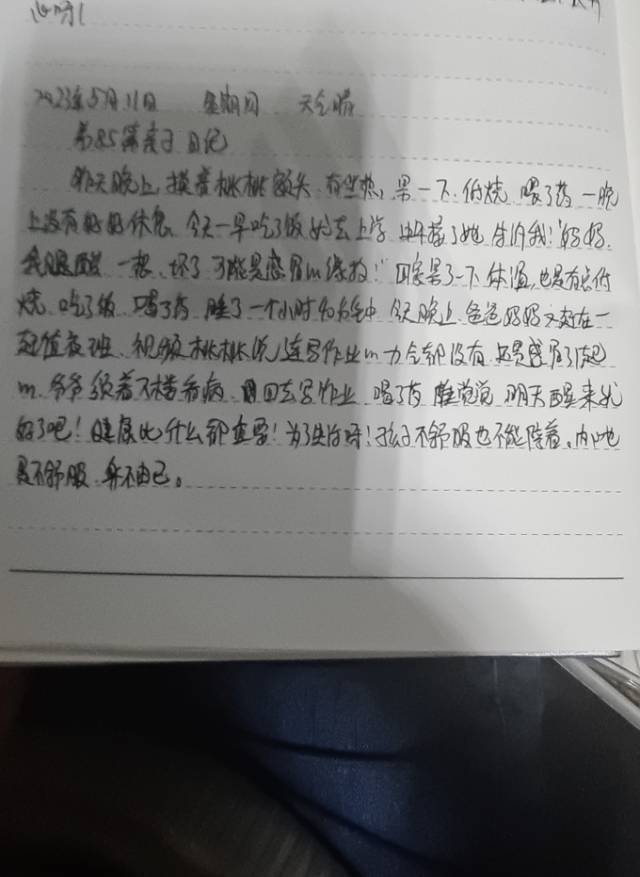 心呀！
2023年5月11日 星期四 天气晴
第85篇亲子日记
昨天晚上，摸着桃桃额头有些热，量一下，低烧，喂了药，一晚
上没有好好休息，今天一早吃了饭就去上学，中午接了她，告诉我：“妈妈，
我腿酸，一想，坏了，可能是感冒的缘故！”回家量了一下体温，也是有点低
烧，吃了饭，喝了药，睡了一个小时40分钟，今天晚上，爸爸妈妈又赶在一
起值夜班，视频桃桃说，连写作业的力气都没有，还是感冒引起
的，爷爷领着不楼看病，回去写作业，喝了药，睡觉觉，明天醒来就
好了吧！健康比什么都重要！为了生活呀！孩子不舒服也不能陪着，内心也
是不舒服，身不由己。